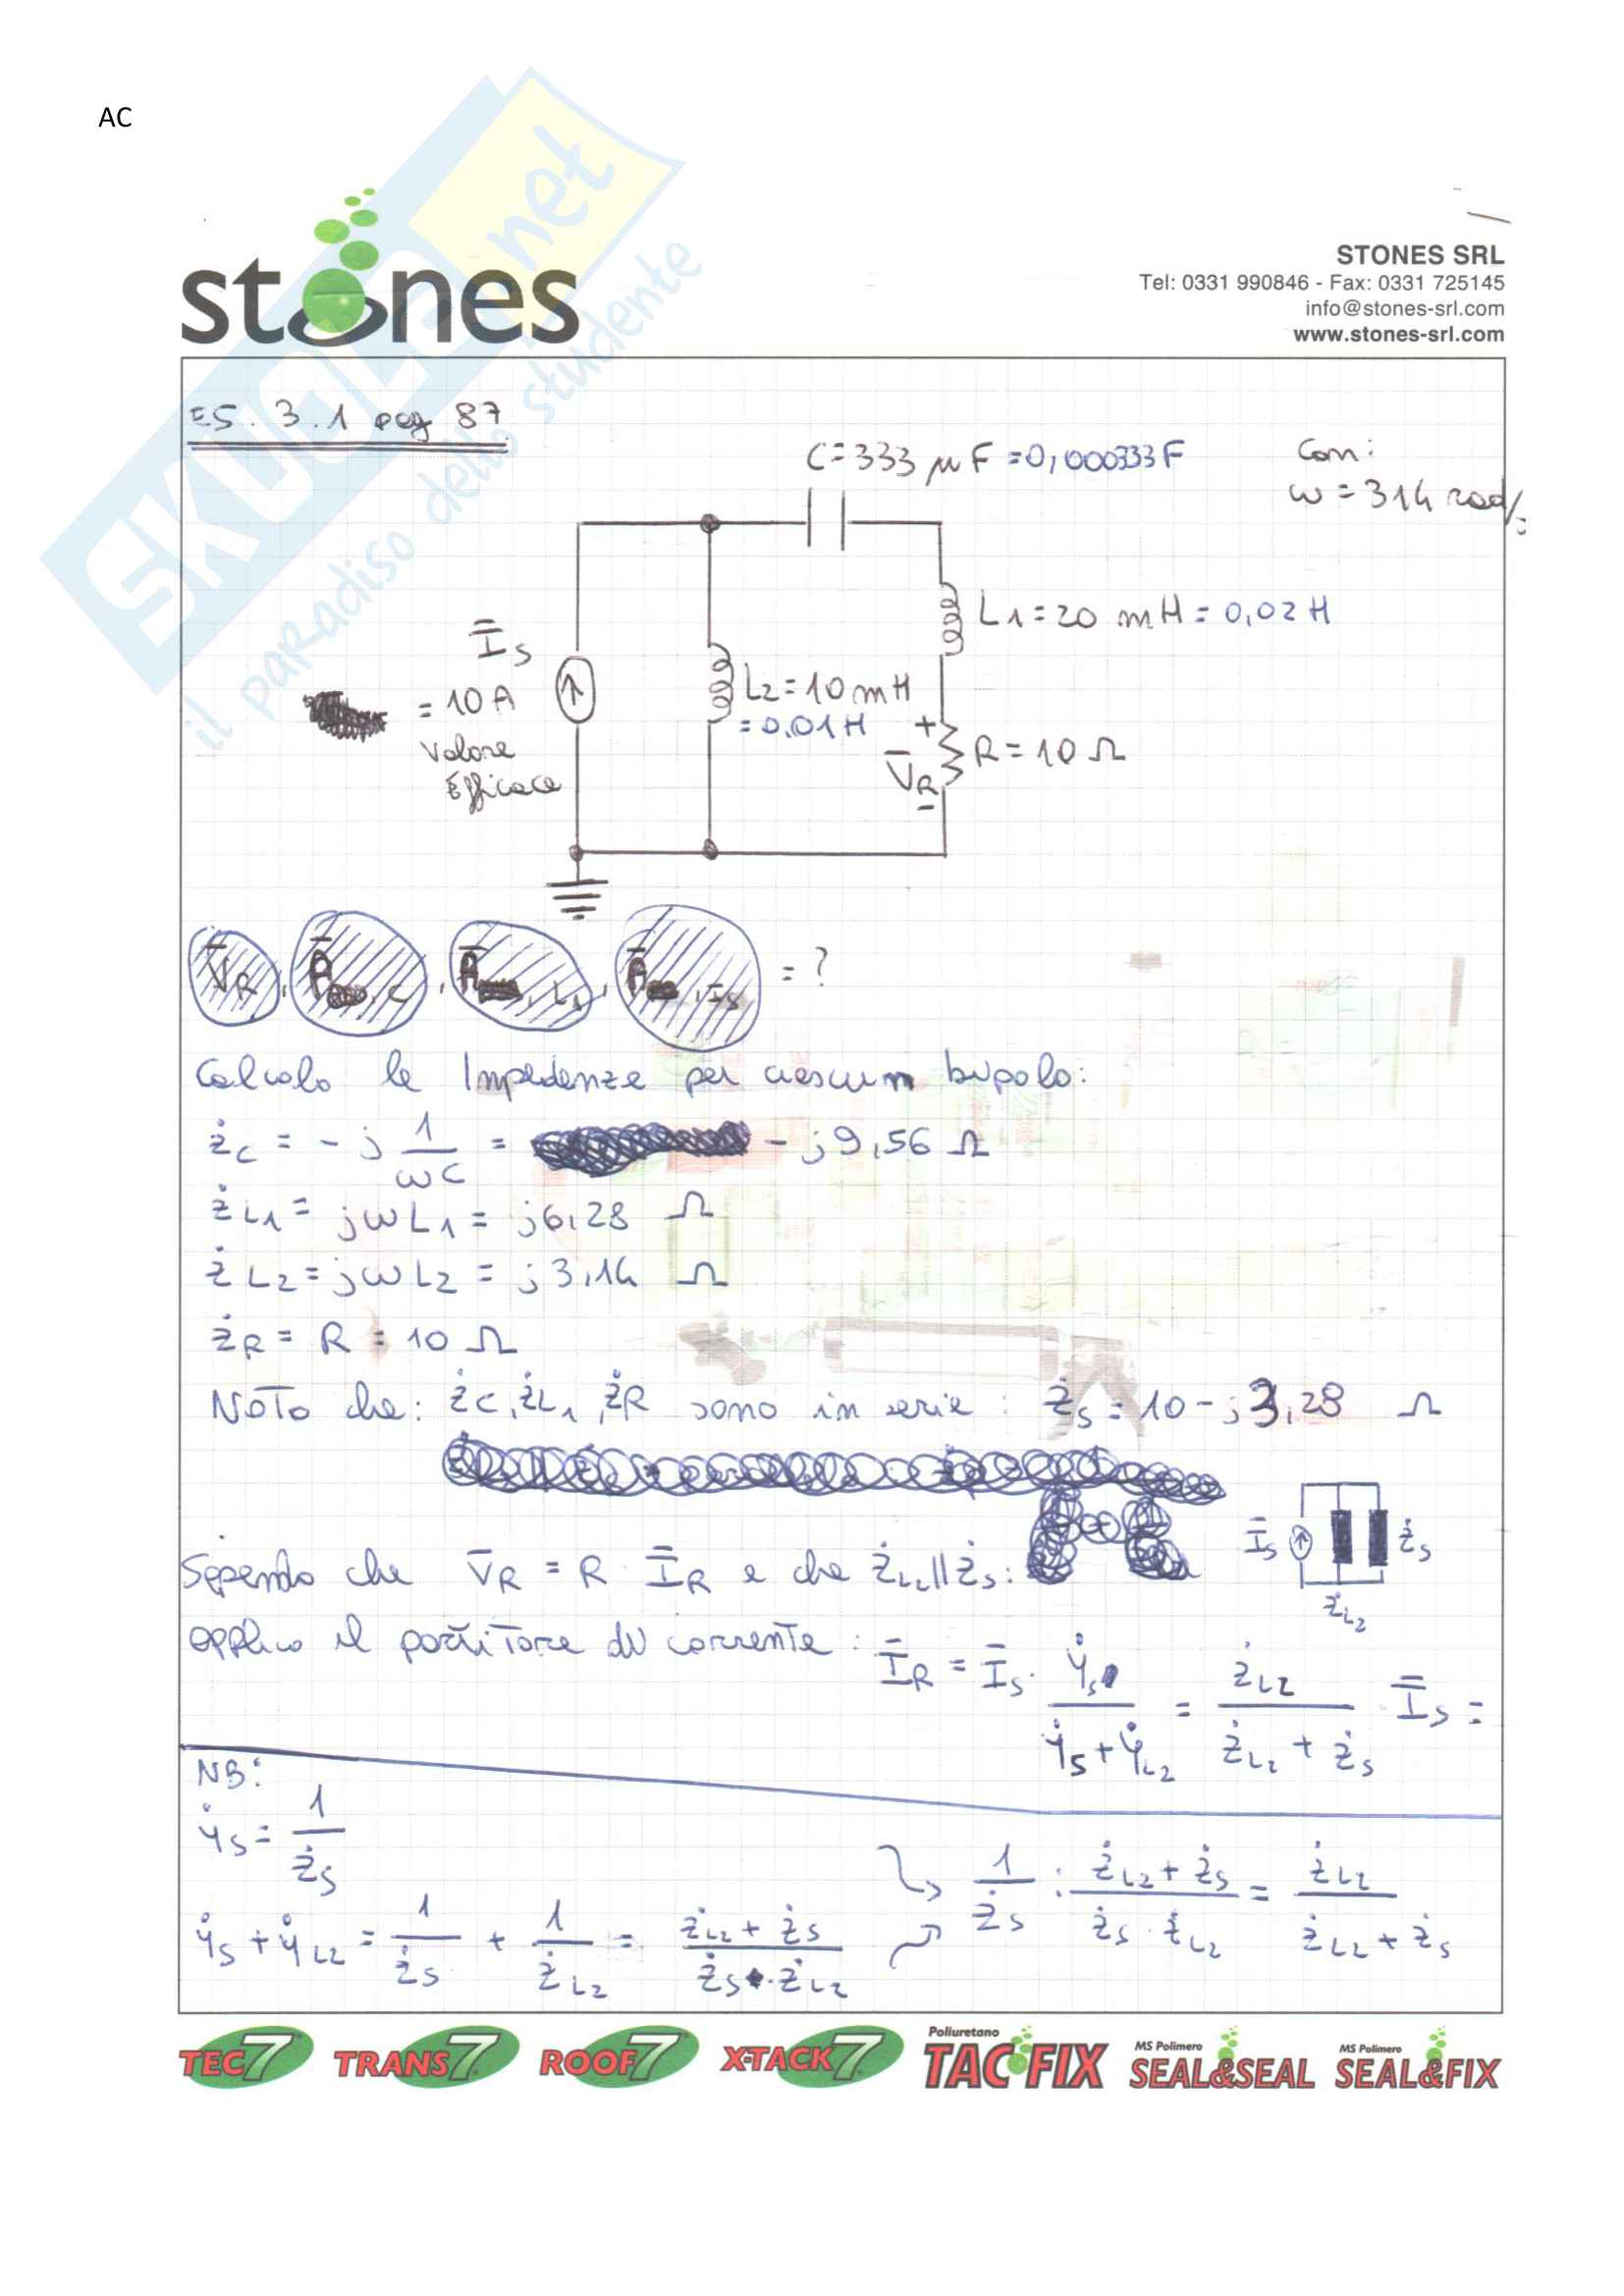 AC
SKUOLA.net
il paradiso dello studente
stones
STONES SRL
Tel: 0331 990846 - Fax: 0331 725145
info@stones-srl.com
www.stones-srl.com
ES. 3.1 pag 87
C = 333 μF = 0,000333F
Con:
ω = 314 rad/s
L1 = 20 mH = 0,02H
I̅s
= 10A
Valore
Efficace
L2 = 10mH
= 0,01H
+
V̅R
-
R = 10 Ω
V̅R, A̅C, A̅L1, A̅Is = ?
Calcolo le Impedenze per ciascun bipolo:
żC = -j 1/ωC = -j9,56 Ω
żL1 = jωL1 = j6,28 Ω
żL2 = jωL2 = j3,14 Ω
żR = R = 10 Ω
NOTO che: żC, żL1, żR sono in serie: żs = 10 - j3,28 Ω
I̅s żs
żL2
Sapendo che V̅R = R · I̅R e che żL2 // żs:
applico il partitore di corrente: I̅R = I̅s · ẏs/(ẏs + ẏL2) = żL2/(żL2 + żs) I̅s =
NB:
ẏs = 1/żs
ẏs + ẏL2 = 1/żs + 1/żL2 = (żL2 + żs)/(żs · żL2)
1/żs : (żL2 + żs)/(żs · żL2) = żL2/(żL2 + żs)
TEC7 TRANS7 ROOF7 X-TACK7 Poliuretano TACFIX MS Polimero SEAL&SEAL MS Polimero SEAL&FIX